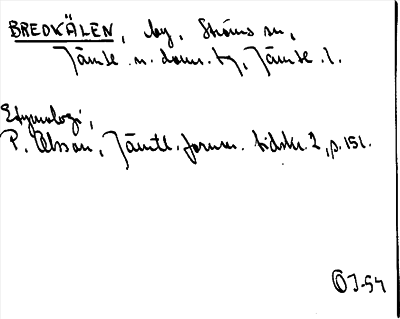 BREDKÄLEN, by, Ströms sn,
Jämtl. n. doms. tg, Jämtl. l.
Etymologi,
P. Olsson, Jämtl. fornm. tidskr. 2, p. 151.
ÖJ-54